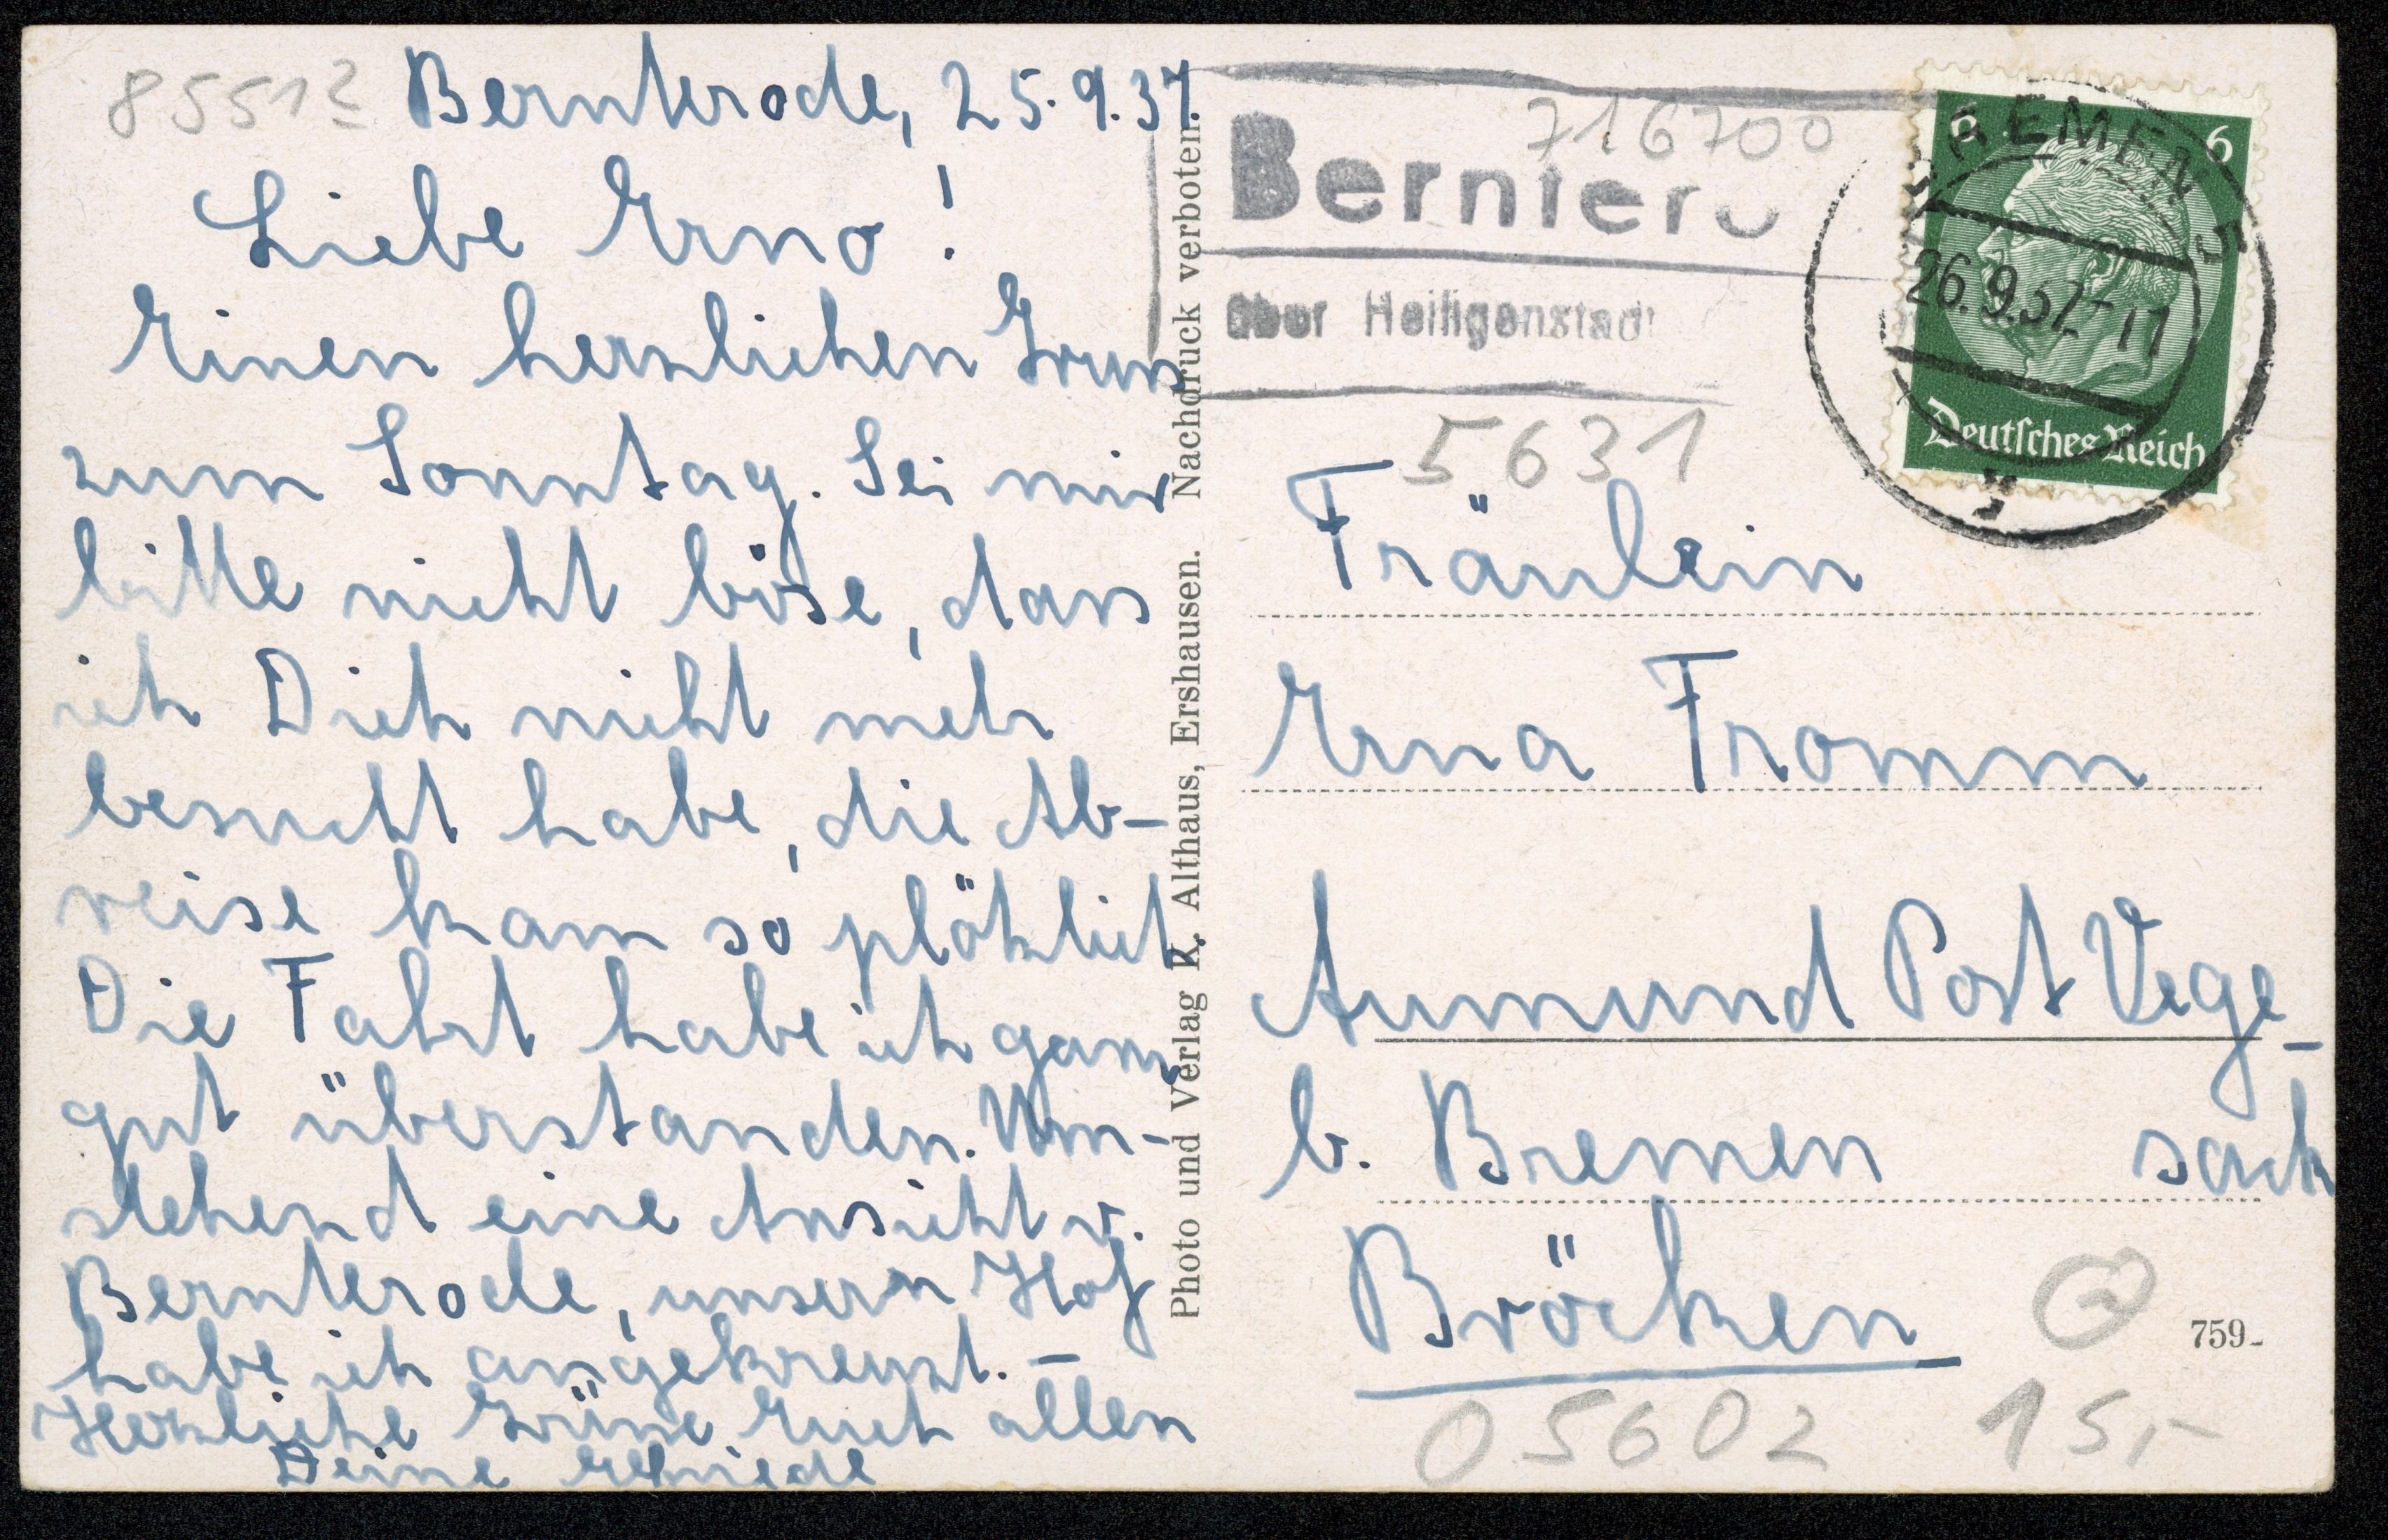 85512
Bernterode, 25.9.37.
Liebe Erna!
Einen herzlichen Gruss
zum Sonntag. Sei mir
bitte nicht böse, dass
ich Dich nicht mehr
besucht habe, die Ab-
reise kam so plötzlich.
Die Fahrt habe ich ganz
gut überstanden. Um-
stehend eine Ansicht v.
Bernterode, unsern Hof
habe ich angekreuzt. –
Herzliche Grüsse Euch allen
Deine
Photo und Verlag K. Althaus, Ershausen. Nachdruck verboten.
716700
Berntero
über Heiligenstadt
5631
6 6
BREMEN 5
26.9.37.-11
Deutsches Reich
Fräulein
Erna Fromm
Aumund Post Vege-
sack
b. Bremen
Bröcken
759
05602 15,-